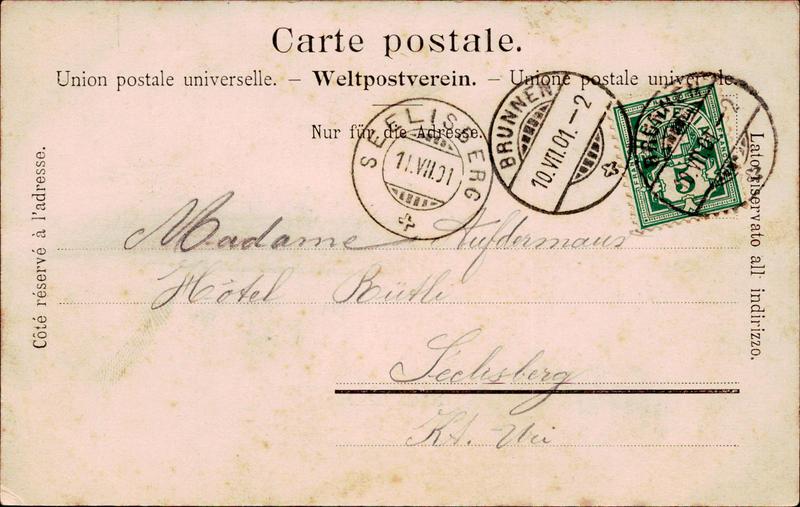 Carte postale.
Union postale universelle. – Weltpostverein. – Unione postale universale.
Nur für die Adresse.
SEELISBERG
11.VII.01
BRUNNEN
10.VII.01.–2
5
Côté réservé à l'adresse.
Lato riservato all' indirizzo.
Madame Aufdermaur
Hôtel Rütli
Seelisberg
Kt. Uri